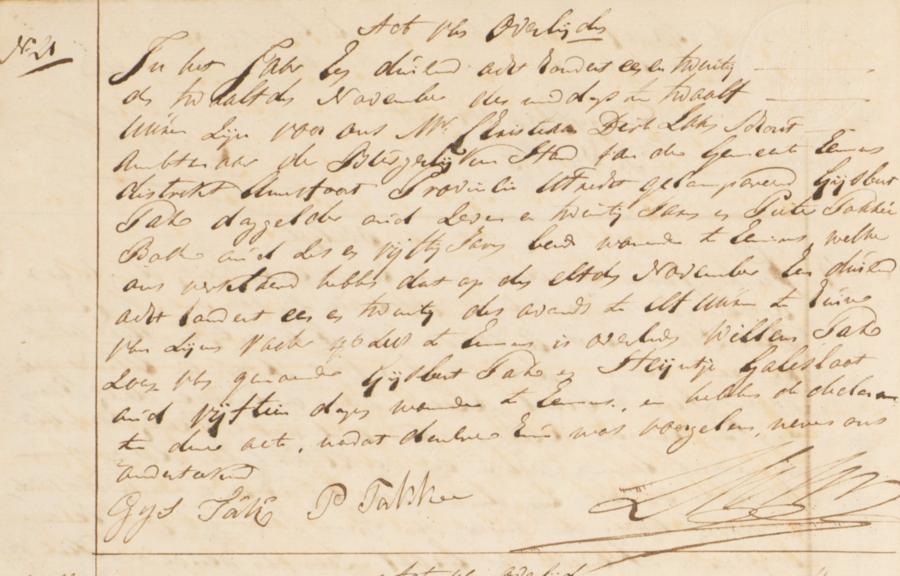 Act van Overlijden
No. 21
In het Jaar Een duizend acht hondert een en twintig
den twaalfden November des middags ten twaalf
Uuren Zijn voor ons Mr. Christiaan Dirk Laks Schout
Ambtenaar der Burgerlijken Stad van de Gemeente Eemnes
district Amersfoort Provincie Utrecht gecompareerd Gijsbert
Take daggelder oud Zeven en twintig Jaren en Pieter Takken
oud des en vijftig Jaren beide wonende te Eemnes, welke
ons verklaard hebben dat op den elfden November Een duizend
acht hondert een en twintig des avonds te elf Uuren te Eemnes
van Zijns Vader te Eemnes is overleden Willem Take
Zoon van genoemde Gijsbert Take en Heijntje Galesloot
oud vijftien dagen wonende te Eemnes, en hebben de declaranten
deze acte, nadat denselve hun was voorgelesen, nevens ons
onderteekend
Gijs Take P Takken